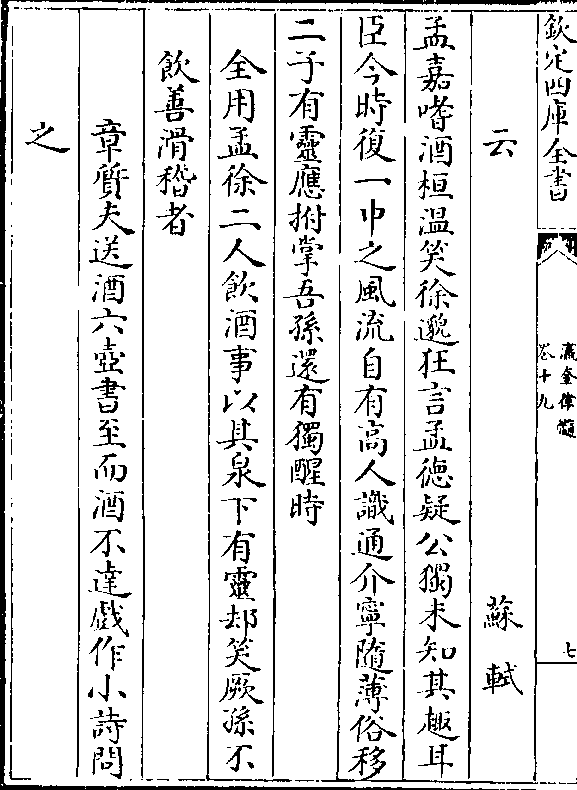 欽定四庫全書
瀛奎律髓
卷十九
七
云
蘇軾
孟嘉嗜酒桓温笑徐邈狂言孟德疑公獨未知其趣耳
臣今時復一中之風流自有高人識通介寧隨薄俗移
二子有靈應拊掌吾孫還有獨醒時
全用孟徐二人飲酒事以其泉下有靈却笑厥孫不
飲善滑稽者
章質夫送酒六壺書至而酒不達戲作小詩問
之